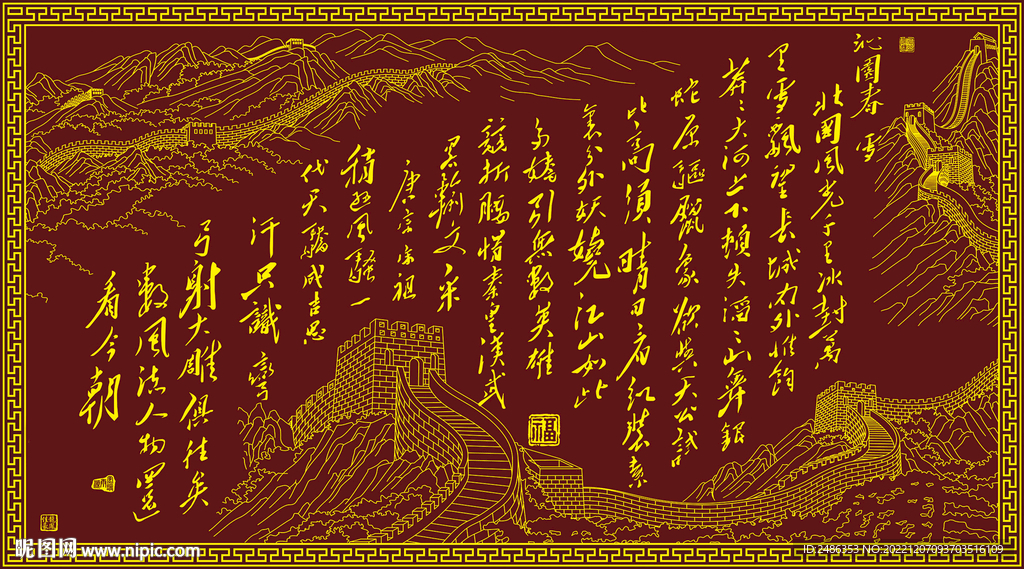 沁園春 雪
北國風光千里冰封萬
里雪飄望長城內外惟餘
莽〻大河上下頓失滔〻山舞銀
蛇原驅臘象欲與天公試
比高須晴日看紅裝素
裹分外妖嬈江山如此
多嬌引無數英雄
競折腰惜秦皇漢武
略輸文采
唐宗宋祖
稍遜風騷一
代天驕成吉思
汗只識彎
弓射大雕俱往矣
數風流人物還
看今朝
福
昵图网 www.nipic.com
ID:2486353 NO:20221207093703516109